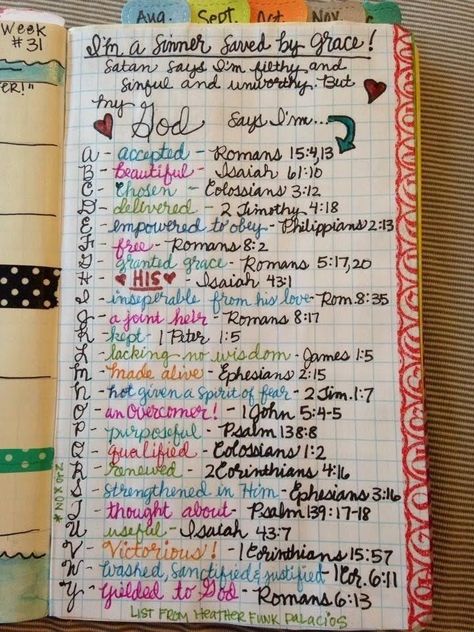 Aug. Sept. Oct Nov
Week
#31
ER!"
I'm a Sinner Saved by Grace!
Satan says I'm filthy and
sinful and unworthy. But
my God says I'm...
A - accepted - Romans 15:4,13
B - Beautiful - Isaiah 61:10
C - Chosen - Colossians 3:12
D - delivered - 2 Timothy 4:18
E - empowered to obey - Philippians 2:13
F - free - Romans 8:2
G - granted grace - Romans 5:17,20
H - HIS - Isaiah 43:1
I - inseperable from his love - Rom. 8:35
J - a joint heir - Romans 8:17
K - kept - 1 Peter 1:5
L - lacking no wisdom - James 1:5
M - made alive - Ephesians 2:15
N - not given a spirit of fear - 2 Tim. 1:7
O - an Overcomer! - 1 John 5:4-5
P - purposeful - Psalm 138:8
Q - qualified - Colossians 1:2
R - renewed - 2 Corinthians 4:16
S - strengthened in Him - Ephesians 3:16
T - thought about - Psalm 139:17-18
U - useful - Isaiah 43:7
V - Victorious! - 1 Corinthians 15:57
W - Washed, Sanctified & justified - 1 Cor. 6:11
Y - Yielded to God - Romans 6:13
LIST FROM HEATHER FUNK PALACIOS